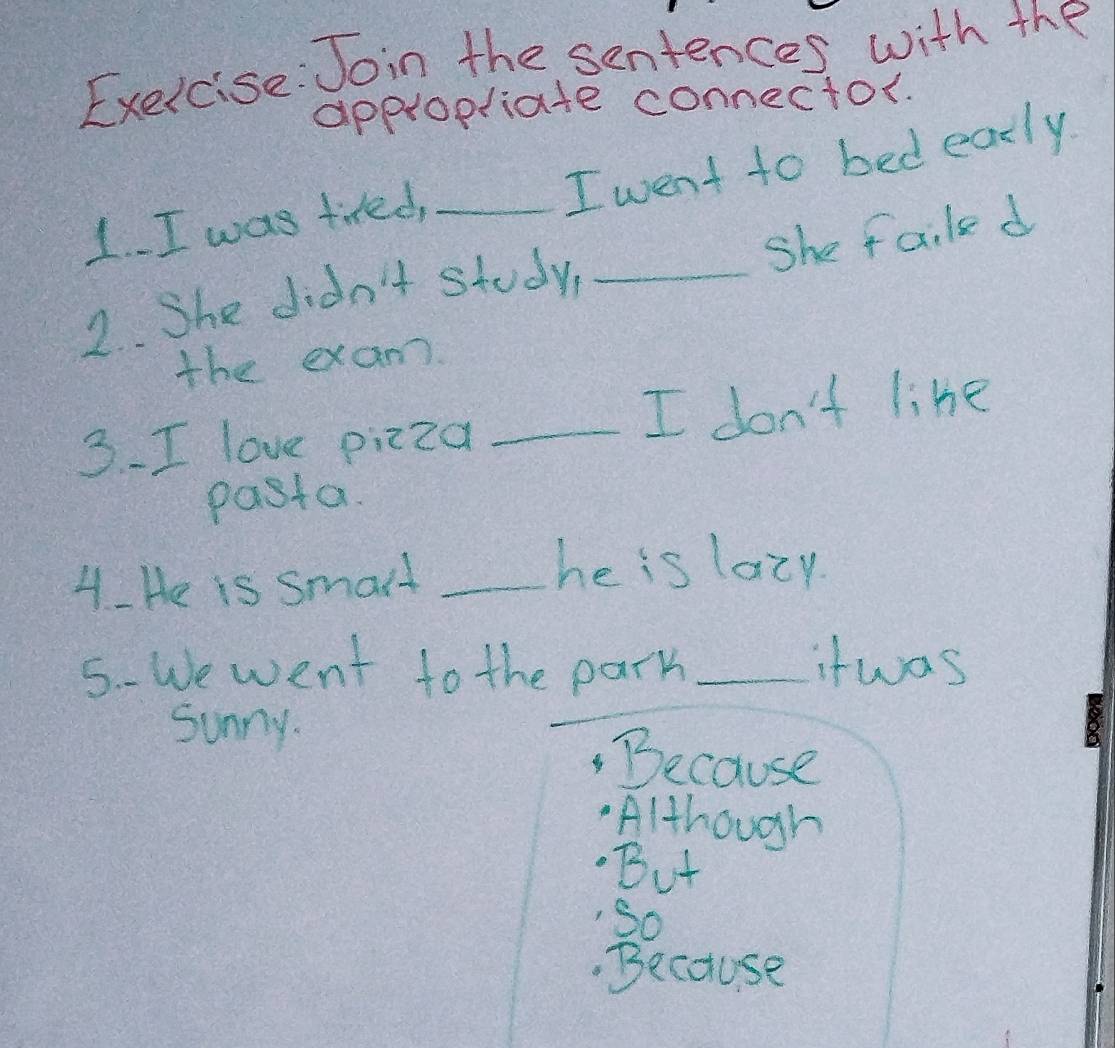 Exercise: Join the sentences with the
appropriate connector.
1.- I was tired, ____ I went to bed early.
2.- She didn't study, ____ she failed
the exam.
3.- I love pizza ____ I don't like
pasta.
4.- He is smart ____ he is lazy.
5.- We went to the park ____ it was
sunny.
• Because
• Although
• But
• So
• Because